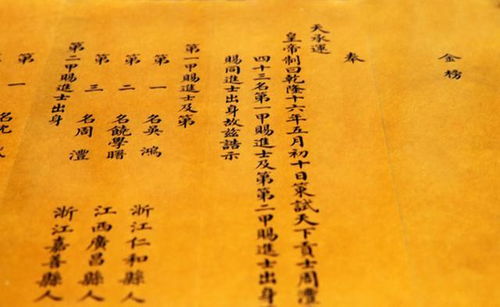 金榜
奉
天承運
皇帝制曰乾隆十六年五月初十日策試天下貢士周澧
四十三名第一甲賜進士及第第二甲賜進士出身
賜同進士出身故茲誥示
第一甲賜進士及第
第一名吳鴻 浙江仁和縣人
第二名饒學曙 江西廣昌縣人
第三名周澧 浙江嘉善縣人
第二甲賜進士出身
第一名沈